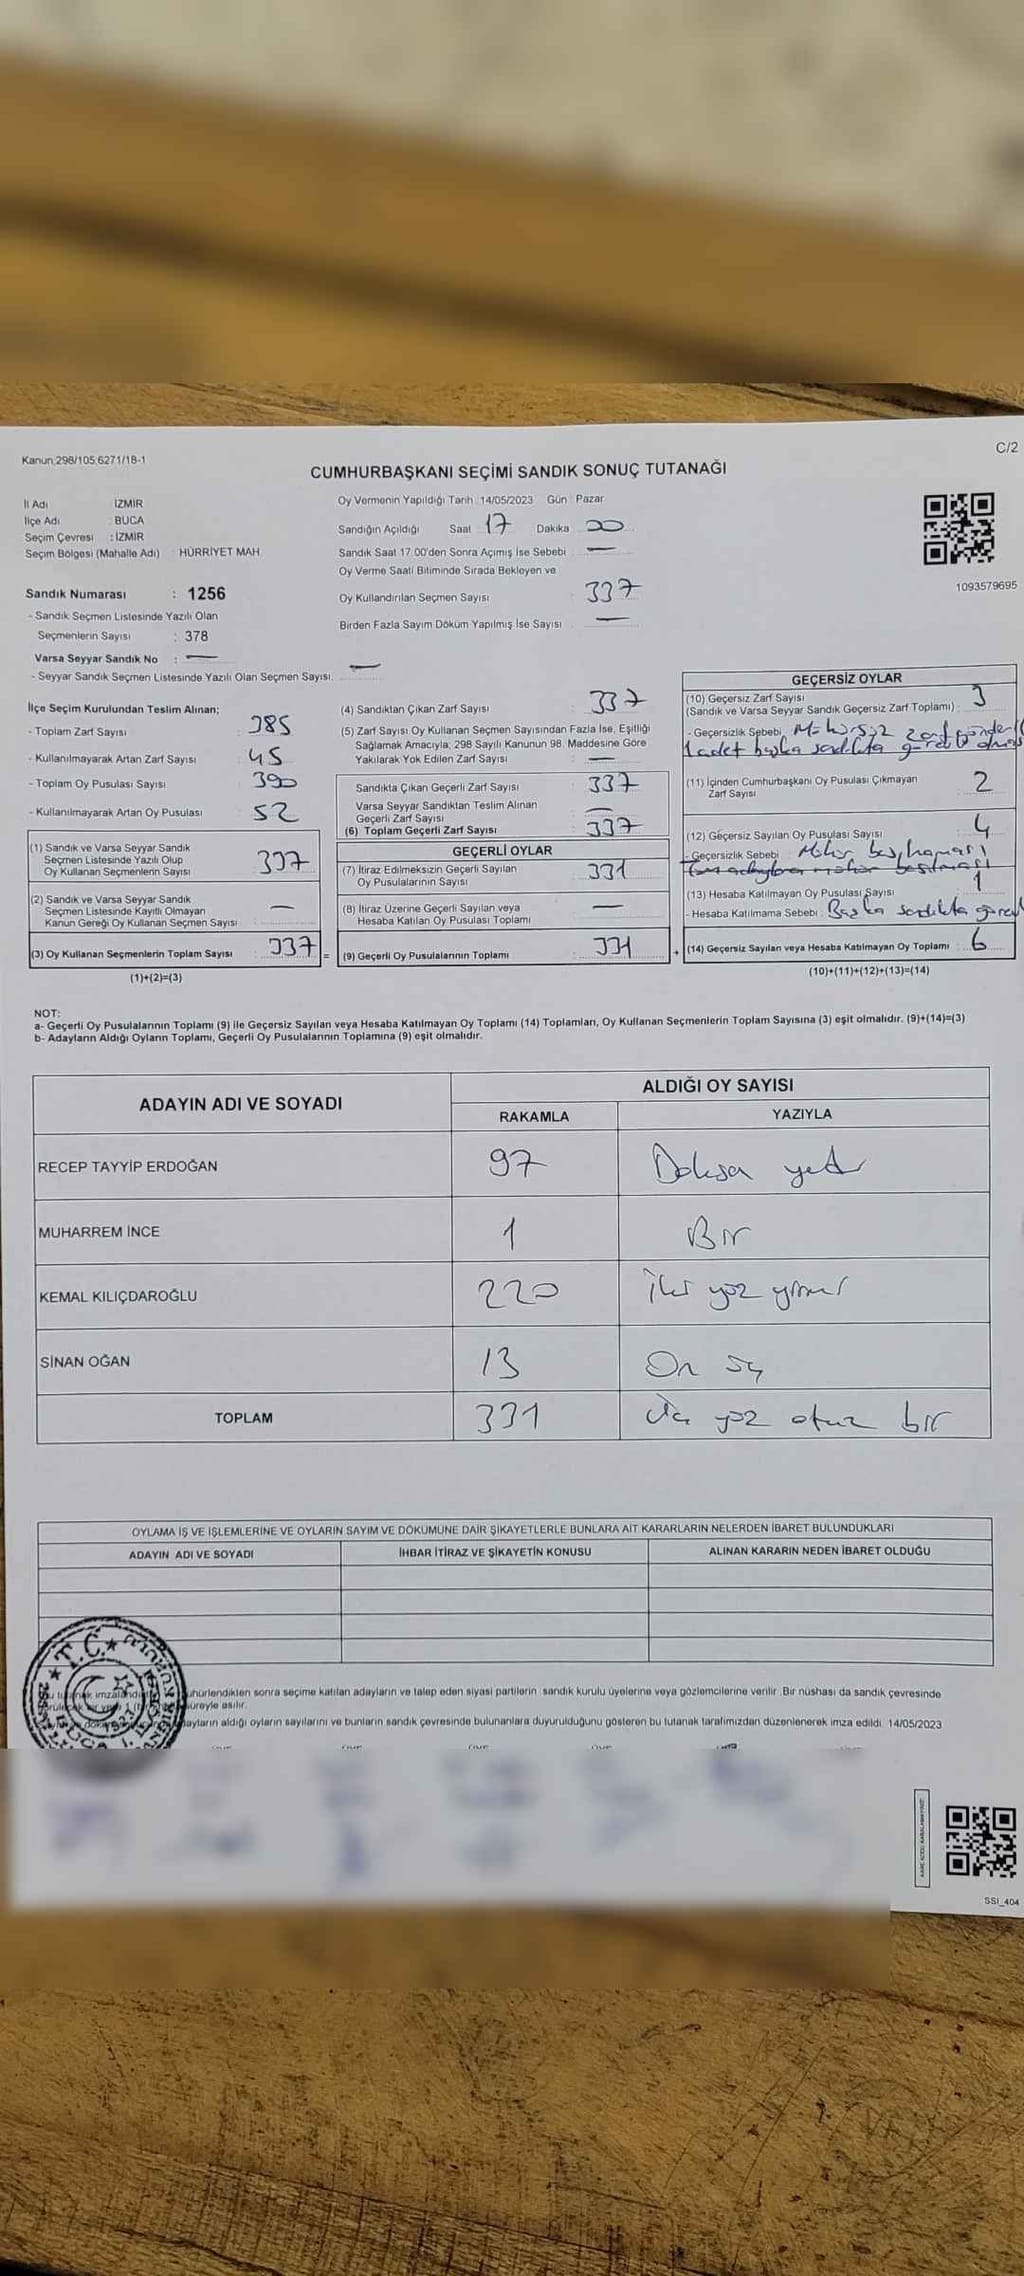 Kanun,298/105,6271/18-1
C/2
CUMHURBAŞKANI SEÇİMİ SANDIK SONUÇ TUTANAĞI
İl Adı İZMİR
İlçe Adı : BUCA
Seçim Çevresi : İZMİR
Seçim Bölgesi (Mahalle Adı) : HÜRRİYET MAH.
Sandık Numarası : 1256
- Sandık Seçmen Listesinde Yazılı Olan
Seçmenlerin Sayısı : 378
Varsa Seyyar Sandık No : —
- Seyyar Sandık Seçmen Listesinde Yazılı Olan Seçmen Sayısı: —
Oy Vermenin Yapıldığı Tarih : 14/05/2023 Gün : Pazar
Sandığın Açıldığı Saat 17 Dakika 00
Sandık Saat 17.00'den Sonra Açılmış İse Sebebi —
Oy Verme Saati Bitiminde Sırada Bekleyen ve
Oy Kullandırılan Seçmen Sayısı : 337
Birden Fazla Sayım Döküm Yapılmış İse Sayısı : —
1093579695
İlçe Seçim Kurulundan Teslim Alınan;
- Toplam Zarf Sayısı : 385
- Kullanılmayarak Artan Zarf Sayısı : 45
- Toplam Oy Pusulası Sayısı : 390
- Kullanılmayarak Artan Oy Pusulası : 52
(1) Sandık ve Varsa Seyyar Sandık
Seçmen Listesinde Yazılı Olup
Oy Kullanan Seçmenlerin Sayısı : 337
(2) Sandık ve Varsa Seyyar Sandık
Seçmen Listesinde Kayıtlı Olmayan
Kanun Gereği Oy Kullanan Seçmen Sayısı : —
(3) Oy Kullanan Seçmenlerin Toplam Sayısı : 337 =
(1)+(2)=(3)
(4) Sandıktan Çıkan Zarf Sayısı : 337
(5) Zarf Sayısı Oy Kullanan Seçmen Sayısından Fazla İse, Eşitliği
Sağlamak Amacıyla; 298 Sayılı Kanunun 98. Maddesine Göre
Yakılarak Yok Edilen Zarf Sayısı : —
Sandıkta Çıkan Geçerli Zarf Sayısı : 337
Varsa Seyyar Sandıktan Teslim Alınan
Geçerli Zarf Sayısı : —
(6) Toplam Geçerli Zarf Sayısı : 337
GEÇERLİ OYLAR
(7) İtiraz Edilmeksizin Geçerli Sayılan
Oy Pusulalarının Sayısı : 331
(8) İtiraz Üzerine Geçerli Sayılan veya
Hesaba Katılan Oy Pusulası Toplamı : —
(9) Geçerli Oy Pusulalarının Toplamı : 331 +
GEÇERSİZ OYLAR
(10) Geçersiz Zarf Sayısı
(Sandık ve Varsa Seyyar Sandık Geçersiz Zarf Toplamı) : 3
- Geçersizlik Sebebi : Mühürsüz zarf
1 adet başka sandıkta
(11) İçinden Cumhurbaşkanı Oy Pusulası Çıkmayan
Zarf Sayısı : 2
(12) Geçersiz Sayılan Oy Pusulası Sayısı : 4
- Geçersizlik Sebebi : Mühür basılmaması
(13) Hesaba Katılmayan Oy Pusulası Sayısı : 1
- Hesaba Katılmama Sebebi : Başka sandıkta
(14) Geçersiz Sayılan veya Hesaba Katılmayan Oy Toplamı : 6
(10)+(11)+(12)+(13)=(14)
NOT:
a- Geçerli Oy Pusulalarının Toplamı (9) ile Geçersiz Sayılan veya Hesaba Katılmayan Oy Toplamı (14) Toplamları, Oy Kullanan Seçmenlerin Toplam Sayısına (3) eşit olmalıdır. (9)+(14)=(3)
b- Adayların Aldığı Oyların Toplamı, Geçerli Oy Pusulalarının Toplamına (9) eşit olmalıdır.
ADAYIN ADI VE SOYADI ALDIĞI OY SAYISI
RAKAMLA YAZIYLA
RECEP TAYYİP ERDOĞAN 97 Doksan yedi
MUHARREM İNCE 1 Bir
KEMAL KILIÇDAROĞLU 220 İki yüz yirmi
SİNAN OĞAN 13 On üç
TOPLAM 331 Üç yüz otuz bir
OYLAMA İŞ VE İŞLEMLERİNE VE OYLARIN SAYIM VE DÖKÜMÜNE DAİR ŞİKAYETLERLE BUNLARA AİT KARARLARIN NELERDEN İBARET BULUNDUKLARI
ADAYIN ADI VE SOYADI İHBAR İTİRAZ VE ŞİKAYETİN KONUSU ALINAN KARARIN NEDEN İBARET OLDUĞU
T.C.
sonra seçime katılan adayların ve talep eden siyasi partilerin sandık kurulu üyelerine veya gözlemcilerine verilir. Bir nüshası da sandık çevresinde
süreyle asılır.
adayların aldığı oyların sayılarını ve bunların sandık çevresinde bulunanlara duyurulduğunu gösteren bu tutanak tarafımızdan düzenlenerek imza edildi. 14/05/2023
SSI_404